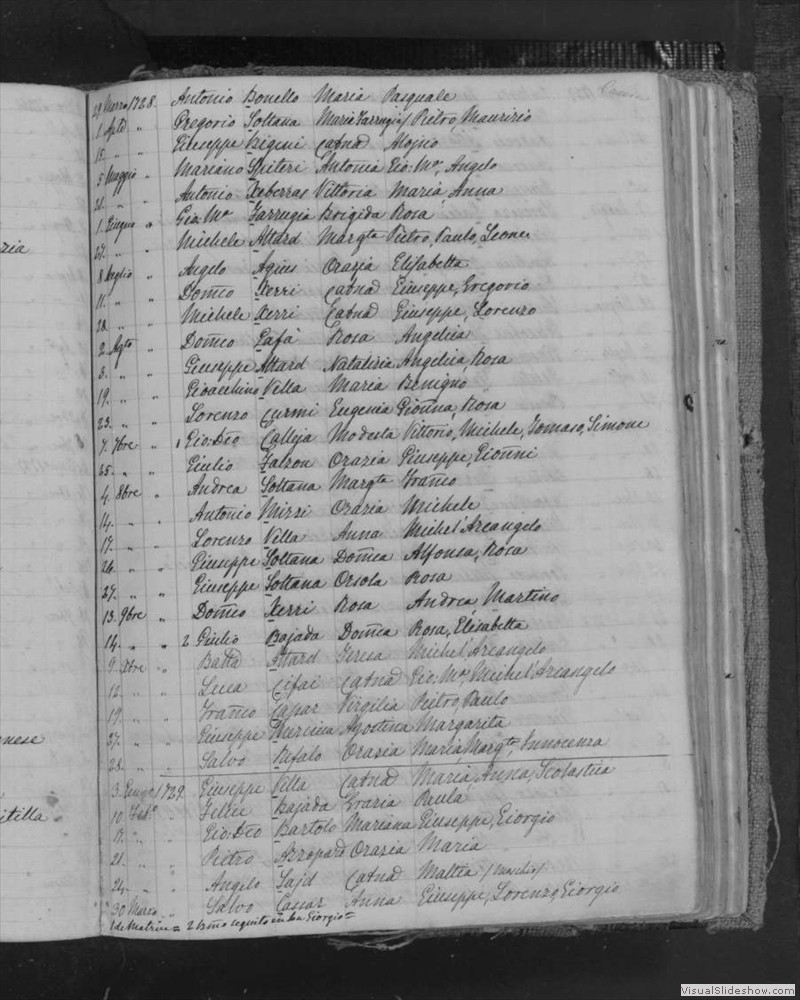 29 Marzo 1728. Antonio Bonello Maria Pasquale
1 Aple " Gregorio Soltana Maria Farrugia / Pietro, Maurizio
15. " " Giuseppe Bigeni Catna
5 Maggio " Mariano Spiteri Antonia Gio: Ma, Angelo
21. " " Antonio Xeberras Vittoria Maria, Anna
1. Giugno " Gio: Ma Farrugia Brigida Rosa
27. " " Michele Attard Margta Pietro, Paulo, Leone
8 Luglio " Angelo Agius Orazia Elisabetta
11. " " Domco Xerri Catna Giuseppe, Gregorio
28. " " Michele Xerri Catna Giuseppe, Lorenzo
2 Agto " Domco Gafà Rosa Angelica
3. " " Giuseppe Attard Natalizia Angelica, Rosa
19. " " Gioacchino Vella Maria Benigno
23. " " Lorenzo Curmi Eugenia Gionna, Rosa
7. 7bre " 1 Gio: Deo Calleja Modesta Vittorio, Michele, Tomaso, Simone
25. " " Giulio Falzon Orazia Giuseppe, Gionni
4. 8bre " Andrea Soltana Margta Franco
14. " " Antonio Mizzi Orazia Michele
17. " " Lorenzo Vella Anna Michel'Arcangelo
26. " " Giuseppe Soltana Domca Alfonsa, Rosa
27. " " Giuseppe Soltana Orsola Rosa
13. 9bre " Domco Xerri Rosa Andrea, Martino
14. " " 2 Giulio Bajada Domca Rosa, Elisabetta
9 Xbre " Batta Attard Teresa Michel'Arcangelo
12. " " Luca Cifai Catna Gio: Ma, Michel'Arcangelo
19. " " Franco Caxar Virgilia Pietro, Paulo
27. " " Giuseppe Mercieca Agostina Margarita
28. " " Salvo Refalo Orazia Maria, Margta, Innocenza
3. 1729. Giuseppe Vella Catna Maria, Anna, Scolastica
10 Febo " Felice Bajada Grazia Paula
17. " " Gio: Deo Bartolo Mariana Giuseppe, Giorgio
21. " " Pietro Azzopardo Orazia Maria
24. " " Angelo Sajd Catna Mattia / (maschio)
30 Marzo " Salvo Cassar Anna Giuseppe, Lorenzo, Giorgio
1 de Matrice = 2 seguito in San Giorgio =
zia
nese
titta
VisualSlideshow.com